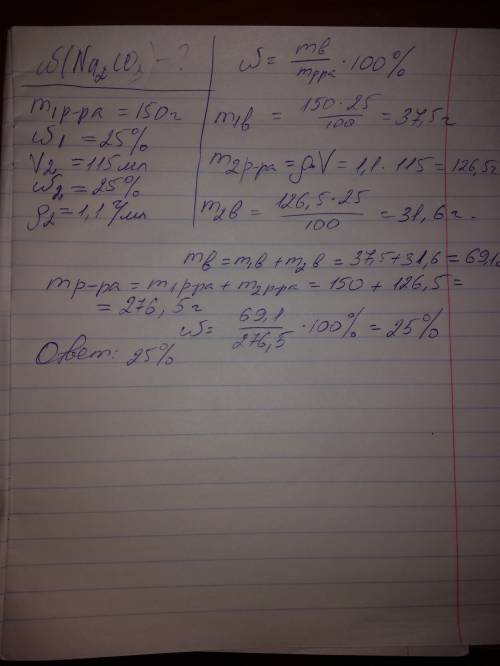 ω(Na₂CO₃) - ?
m₁р-ра = 150г
ω₁ = 25%
V₂ = 115мл
ω₂ = 25%
ρ₂ = 1,1 г/мл
ω = mв / mр-ра · 100%
m₁в = 150 · 25 / 100 = 37,5г
m₂р-ра = ρ·V = 1,1 · 115 = 126,5г
m₂в = 126,5 · 25 / 100 = 31,6г.
mв = m₁в + m₂в = 37,5 + 31,6 = 69,1г
mр-ра = m₁р-ра + m₂р-ра = 150 + 126,5 =
= 276,5г
ω = 69,1 / 276,5 · 100% = 25%
Ответ: 25%